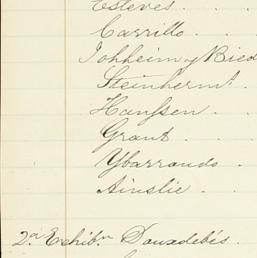 Esteves . . .
Carrillo . . .
Johheim y Bied
Steinherm^t .
Hanssen . .
Grant . . .
Ybarrando .
Ainslie . .
2^a. Exhib^n Dauxdebés .